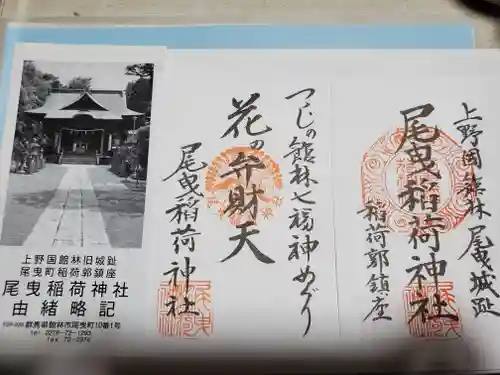 上野國館林 尾曳城趾
尾曳稲荷神社
稲荷郭鎮座
つつじの館林七福神めぐり
花の弁財天
尾曳稲荷神社
上野国館林旧城趾
尾曳町稲荷郭鎮座
尾曳稲荷神社
由緒略記
群馬県館林市尾曳町10番1号